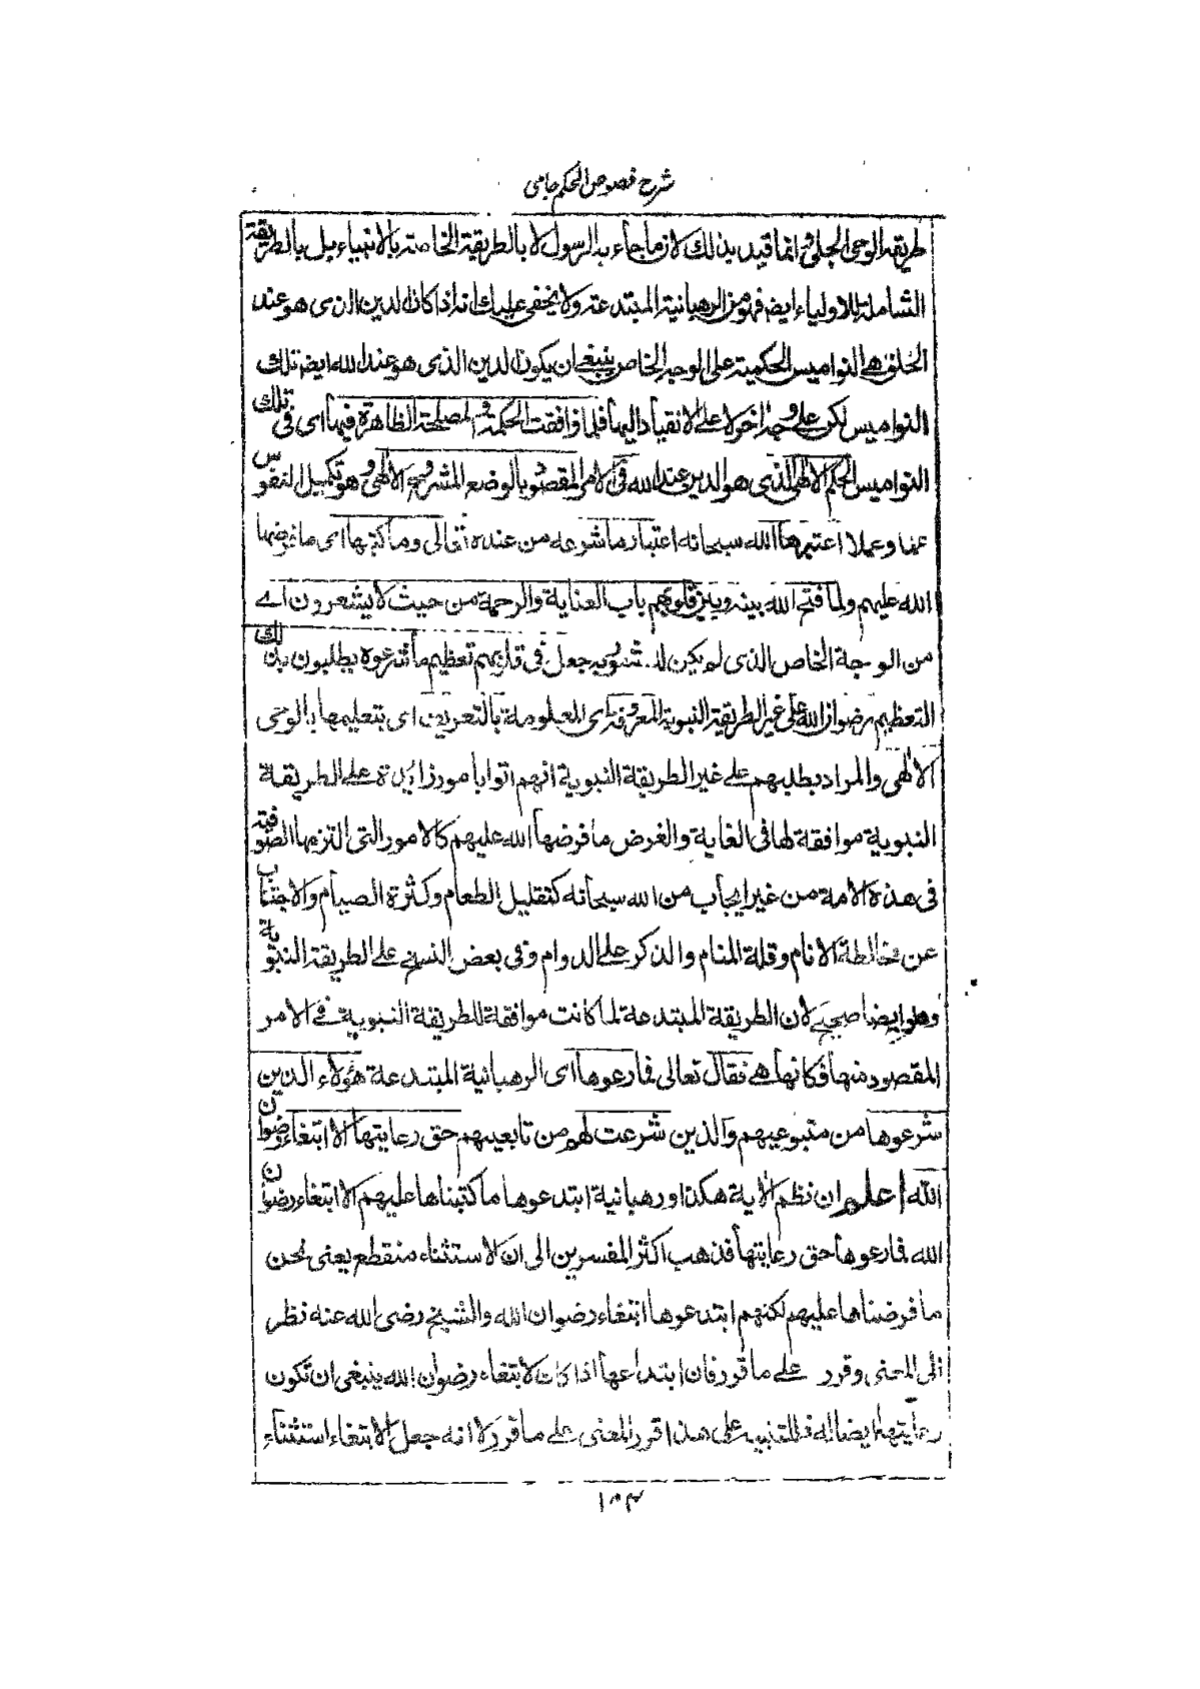 شرح فصوص الحكم جامى
طريقة الوحى الجلى وانما قيد بذلك لان ما جاء به الرسول لا بالطريقة الخاصة بالانبياء بل بالطريقة
الشاملة للاولياء ايضا فهو من الرهبانية المبتدعة ولا يخفى عليك انه اذا كان الدين الذى هو عند
الخلق هى النواميس الحكمية على الوجه الخاص ينبغى ان يكون الدين الذى هو عند الله ايضا تلك
النواميس لكن على وجه اخر لا على الانقياد اليها فلما وافقت الحكمة والمصلحة الظاهرة فيها اى فى تلك
النواميس الحكم الالٰهى الذى هو الدين عند الله فى الامر المقصود بالوضع المشروع الالٰهى وهو تكميل النفوس
علما وعملا اعتبرها الله سبحانه اعتبار ما شرعه من عنده تعالى وما كتبها اى ما فرضها
الله عليهم ولما فتح الله بينه وبين قلوبهم باب العناية والرحمة من حيث لا يشعرون اى
من الوجهة الخاص الذى لم يكن لهم شعور به جعل فى قلوبهم تعظيم ما شرعوه يطلبون بذلك
التعظيم رضوان الله على غير الطريقة النبوية المعروفة اى المعلومة بالتعريف اى بتعليمها بالوحى
الالٰهى والمراد بطلبهم على غير الطريقة النبوية انهم اتوا بامور زائدة على الطريقة
النبوية موافقة لها فى الغاية والغرض ما فرضها الله عليهم كالامور التى التزمها الصوفية
فى هذه الامة من غير ايجاب من الله سبحانه كتقليل الطعام وكثرة الصيام والاجتناب
عن مخالطة الانام وقلة المنام والذكر على الدوام وفى بعض النسخ على الطريقة النبوية
وهو ايضا صحيح لان الطريقة المبتدعة لما كانت موافقة للطريقة النبوية فى الامر
المقصود منها فكانها هى فقال تعالى فما رعوها اى الرهبانية المبتدعة هؤلاء الذين
شرعوها من متبوعيهم والذين شرعت لهم من تابعيهم حق رعايتها الا ابتغاء رضوان
الله اعلم ان نظم الاية هكذا ورهبانية ابتدعوها ما كتبناها عليهم الا ابتغاء رضوان
الله فما رعوها حق رعايتها فذهب اكثر المفسرين الى ان الاستثناء منقطع يعنى نحن
ما فرضناها عليهم لكنهم ابتدعوها ابتغاء رضوان الله والشيخ رضى الله عنه نظر
الى المعنى وقرر على ما قرر فان ابتداعها اذا كانت لابتغاء رضوان الله ينبغى ان تكون
رعايتها ايضا له فللتنبيه على هذا قرر المعنى على ما قرر لا انه جعل الابتغاء استثناء